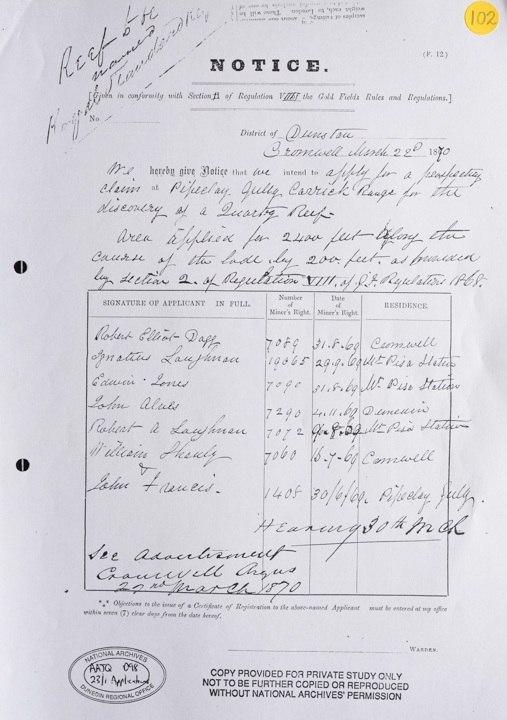 102
REEF to be
named
Royal Standard Reef
(F. 12)
NOTICE.
[Given in conformity with Section 11 of Regulation VIII of the Gold Fields Rules and Regulations.]
No.
District of Dunstan
Cromwell March 22d 1870
We hereby give Notice that we intend to apply for a prospecting
claim at Pipeclay Gully Carrick Range for the
discovery of a Quartz Reef.
Area applied for 2400 feet along the
course of the lode by 200 feet. as provided
by Section 2. of Regulation VIII. of G.F. Regulations 1868.
SIGNATURE OF APPLICANT IN FULL. Number of Miner's Right. Date of Miner's Right. RESIDENCE.
Robert Elliot Dagg 7089 31.8.69 Cromwell
Ignatius Loughnan 19365 29.9.69 Mt Pisa Station
Edwin Jones 7090 31.8.69 Mt Pisa Station
John Alves 7290 4.11.69 Dunedin
Robert A Loughnan 7072 .8.69 Mt Pisa Station
William Shanly 7060 .7.69 Cromwell
John Francis. 1408 30/6/69. Pipeclay Gully.
HEARING 30th MCH
See Advertisment
Cromwell Argus
22nd March 1870
*⁎* Objections to the issue of a Certificate of Registration to the above-named Applicant must be entered at my office
within seven (7) clear days from the date hereof.
WARDEN.
NATIONAL ARCHIVES
AATQ D98
23/1 Application
DUNEDIN REGIONAL OFFICE
COPY PROVIDED FOR PRIVATE STUDY ONLY
NOT TO BE FURTHER COPIED OR REPRODUCED
WITHOUT NATIONAL ARCHIVES' PERMISSION